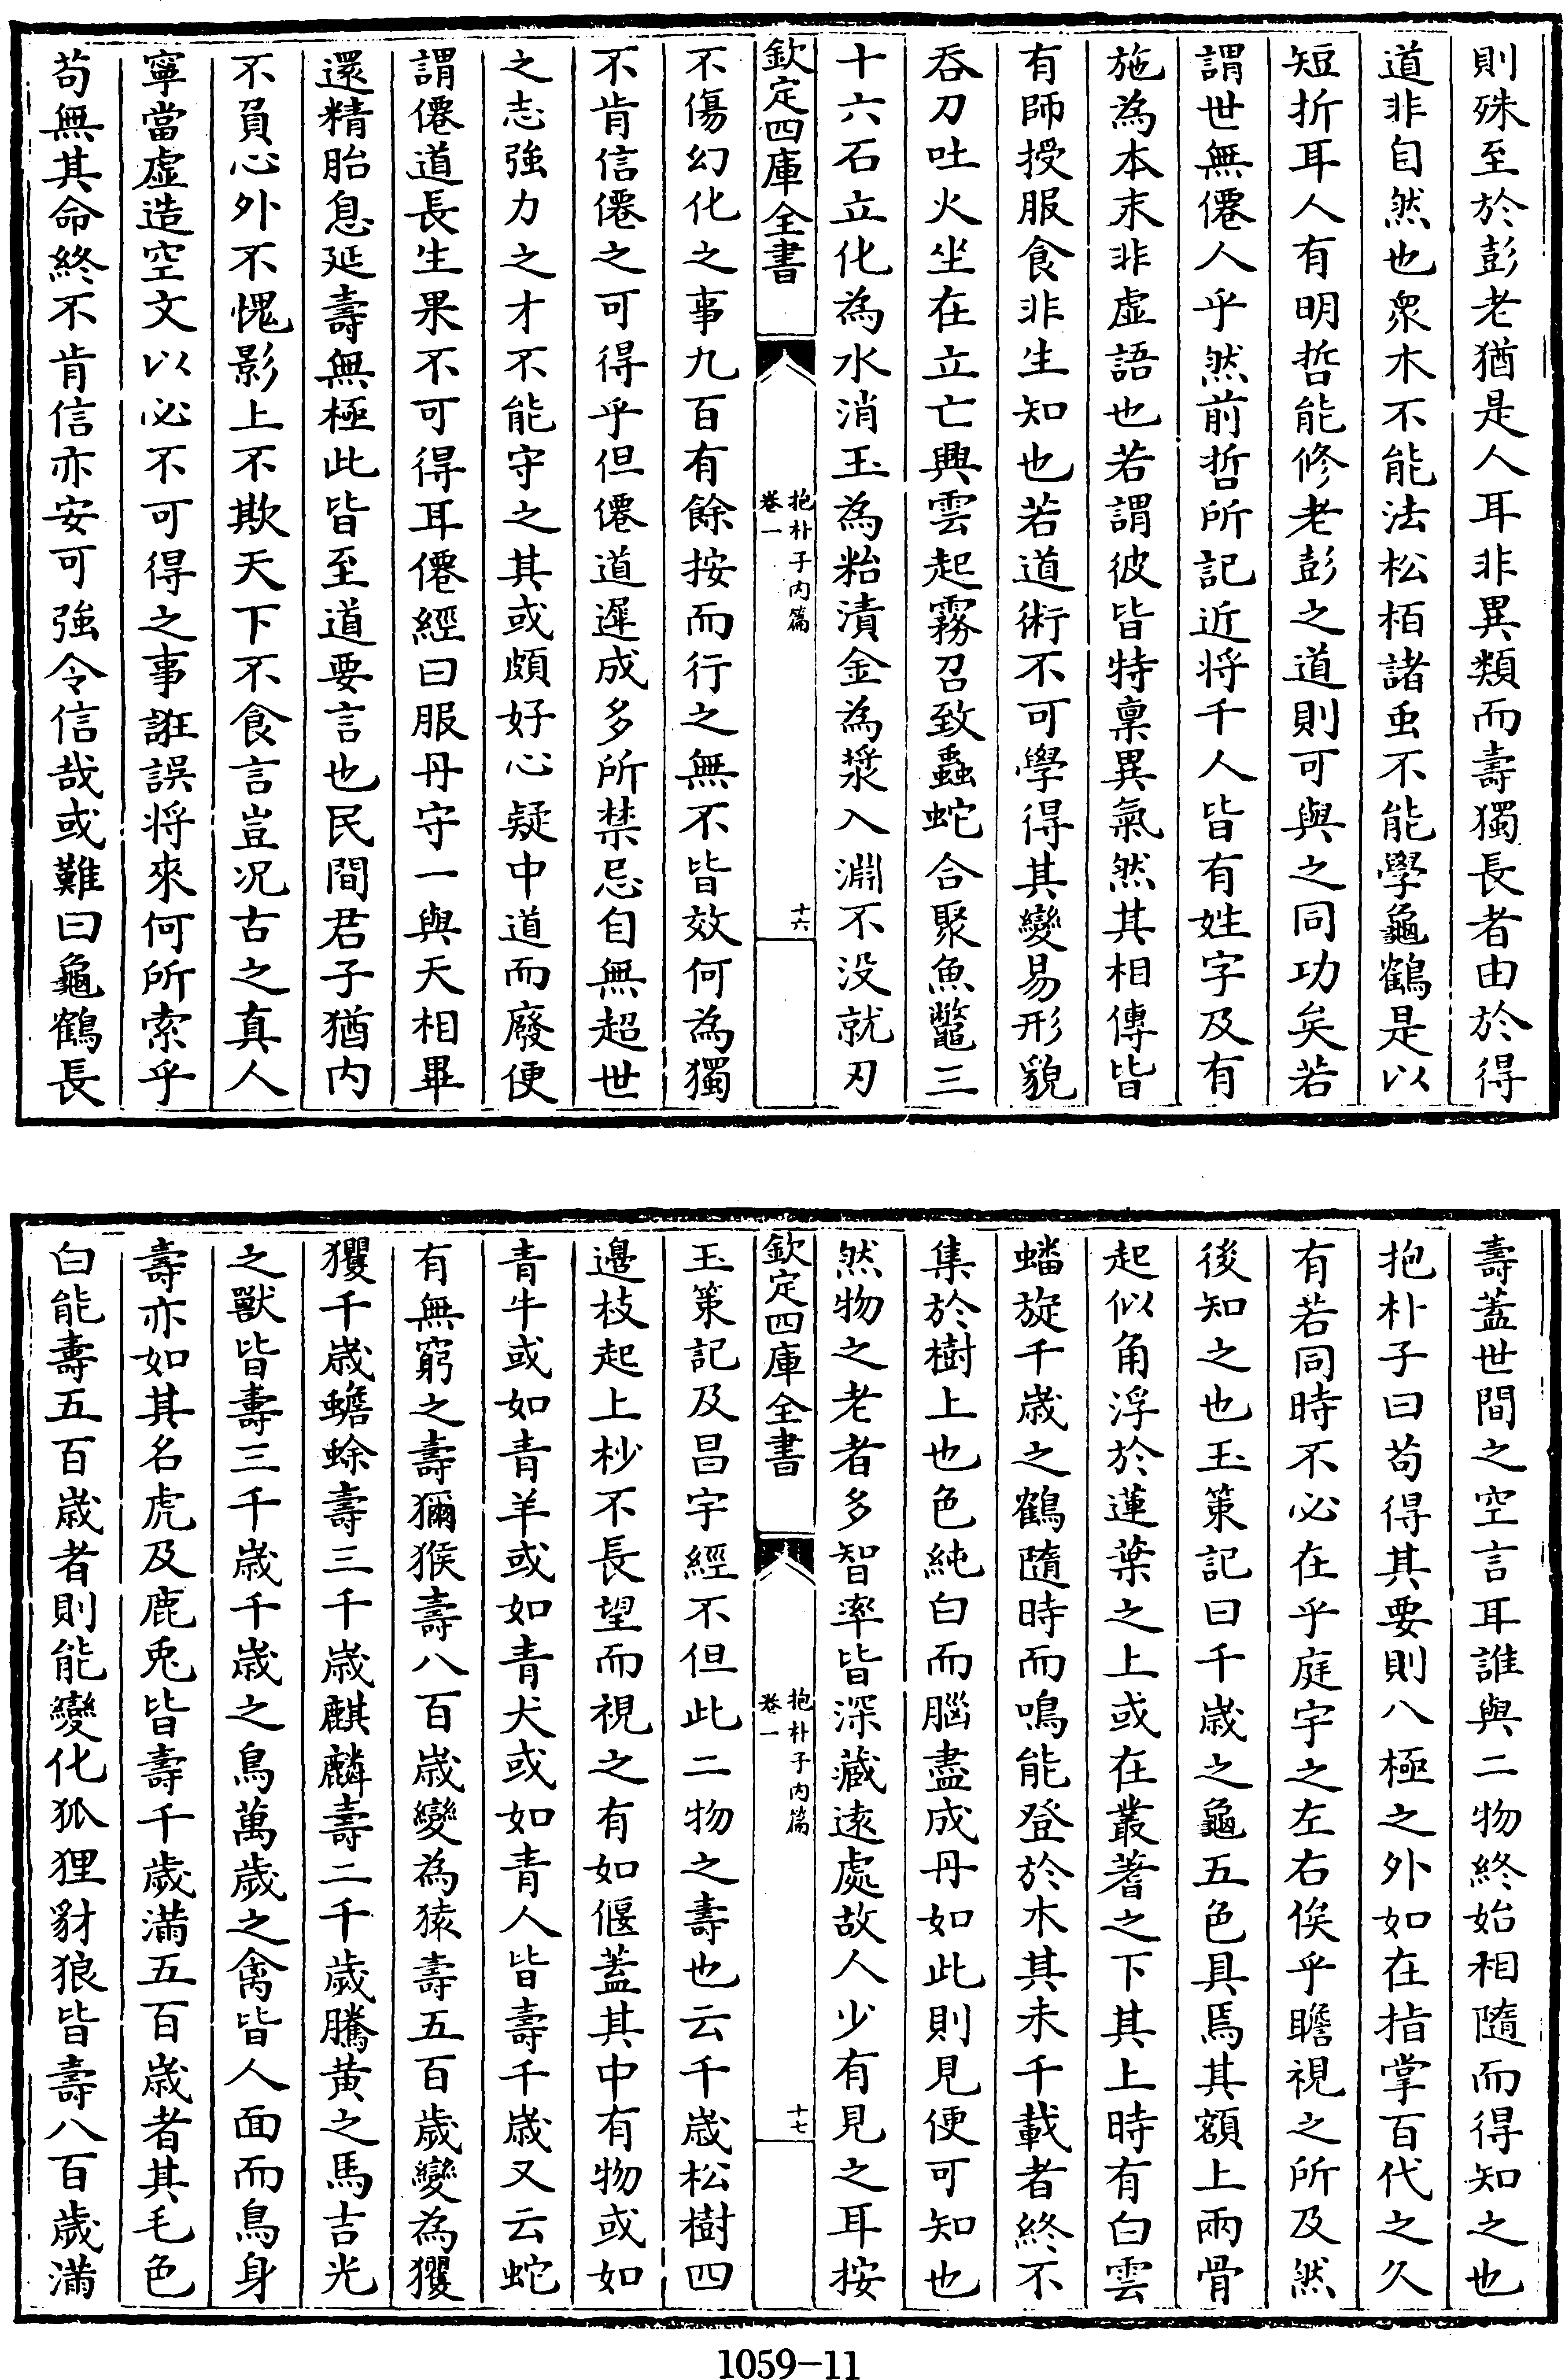 則殊至於彭老猶是人耳非異類而壽獨長者由於得
道非自然也衆木不能法松栢諸虫不能學龜鶴是以
短折耳人有明哲能修老彭之道則可與之同功矣若
謂世無僊人乎然前哲所記近将千人皆有姓字及有
施為本末非虛語也若謂彼皆特稟異氣然其相傳皆
有師授服食非生知也若道術不可學得其變易形貌
吞刀吐火坐在立亡興雲起霧召致蟲蛇合聚魚鼈三
十六石立化為水消玉為粭漬金為漿入淵不没就刃
欽定四庫全書
抱朴子内篇
卷一
十六
不傷幻化之事九百有餘按而行之無不皆效何為獨
不肯信僊之可得乎但僊道遲成多所禁忌自無超世
之志強力之才不能守之其或頗好心疑中道而廢便
謂僊道長生果不可得耳僊經曰服丹守一與天相畢
還精胎息延壽無極此皆至道要言也民間君子猶内
不負心外不愧影上不欺天下不食言豈况古之真人
寧當虛造空文以必不可得之事誑誤将來何所索乎
苟無其命終不肯信亦安可強令信哉或難曰龜鶴長
壽蓋世間之空言耳誰與二物終始相隨而得知之也
抱朴子曰苟得其要則八極之外如在指掌百代之久
有若同時不必在乎庭宇之左右俟乎瞻視之所及然
後知之也玉策記曰千歳之龜五色具焉其額上兩骨
起似角浮於蓮葉之上或在叢蓍之下其上時有白雲
蟠旋千歳之鶴隨時而鳴能登於木其未千載者終不
集於樹上也色純白而腦盡成丹如此則見便可知也
然物之老者多智率皆深藏遠處故人少有見之耳按
欽定四庫全書
抱朴子内篇
卷一
十七
玉策記及昌宇經不但此二物之壽也云千歳松樹四
邊枝起上杪不長望而視之有如偃蓋其中有物或如
青牛或如青羊或如青犬或如青人皆壽千歳又云蛇
有無窮之壽獼猴壽八百歳變為猿壽五百歳變為玃
玃千歳蟾蜍壽三千歳麒麟壽二千歳騰黄之馬吉光
之獸皆壽三千歳千歳之鳥萬歳之禽皆人面而鳥身
壽亦如其名虎及鹿兎皆壽千歳滿五百歳者其毛色
白能壽五百歳者則能變化狐狸豺狼皆壽八百歳滿
1059-11